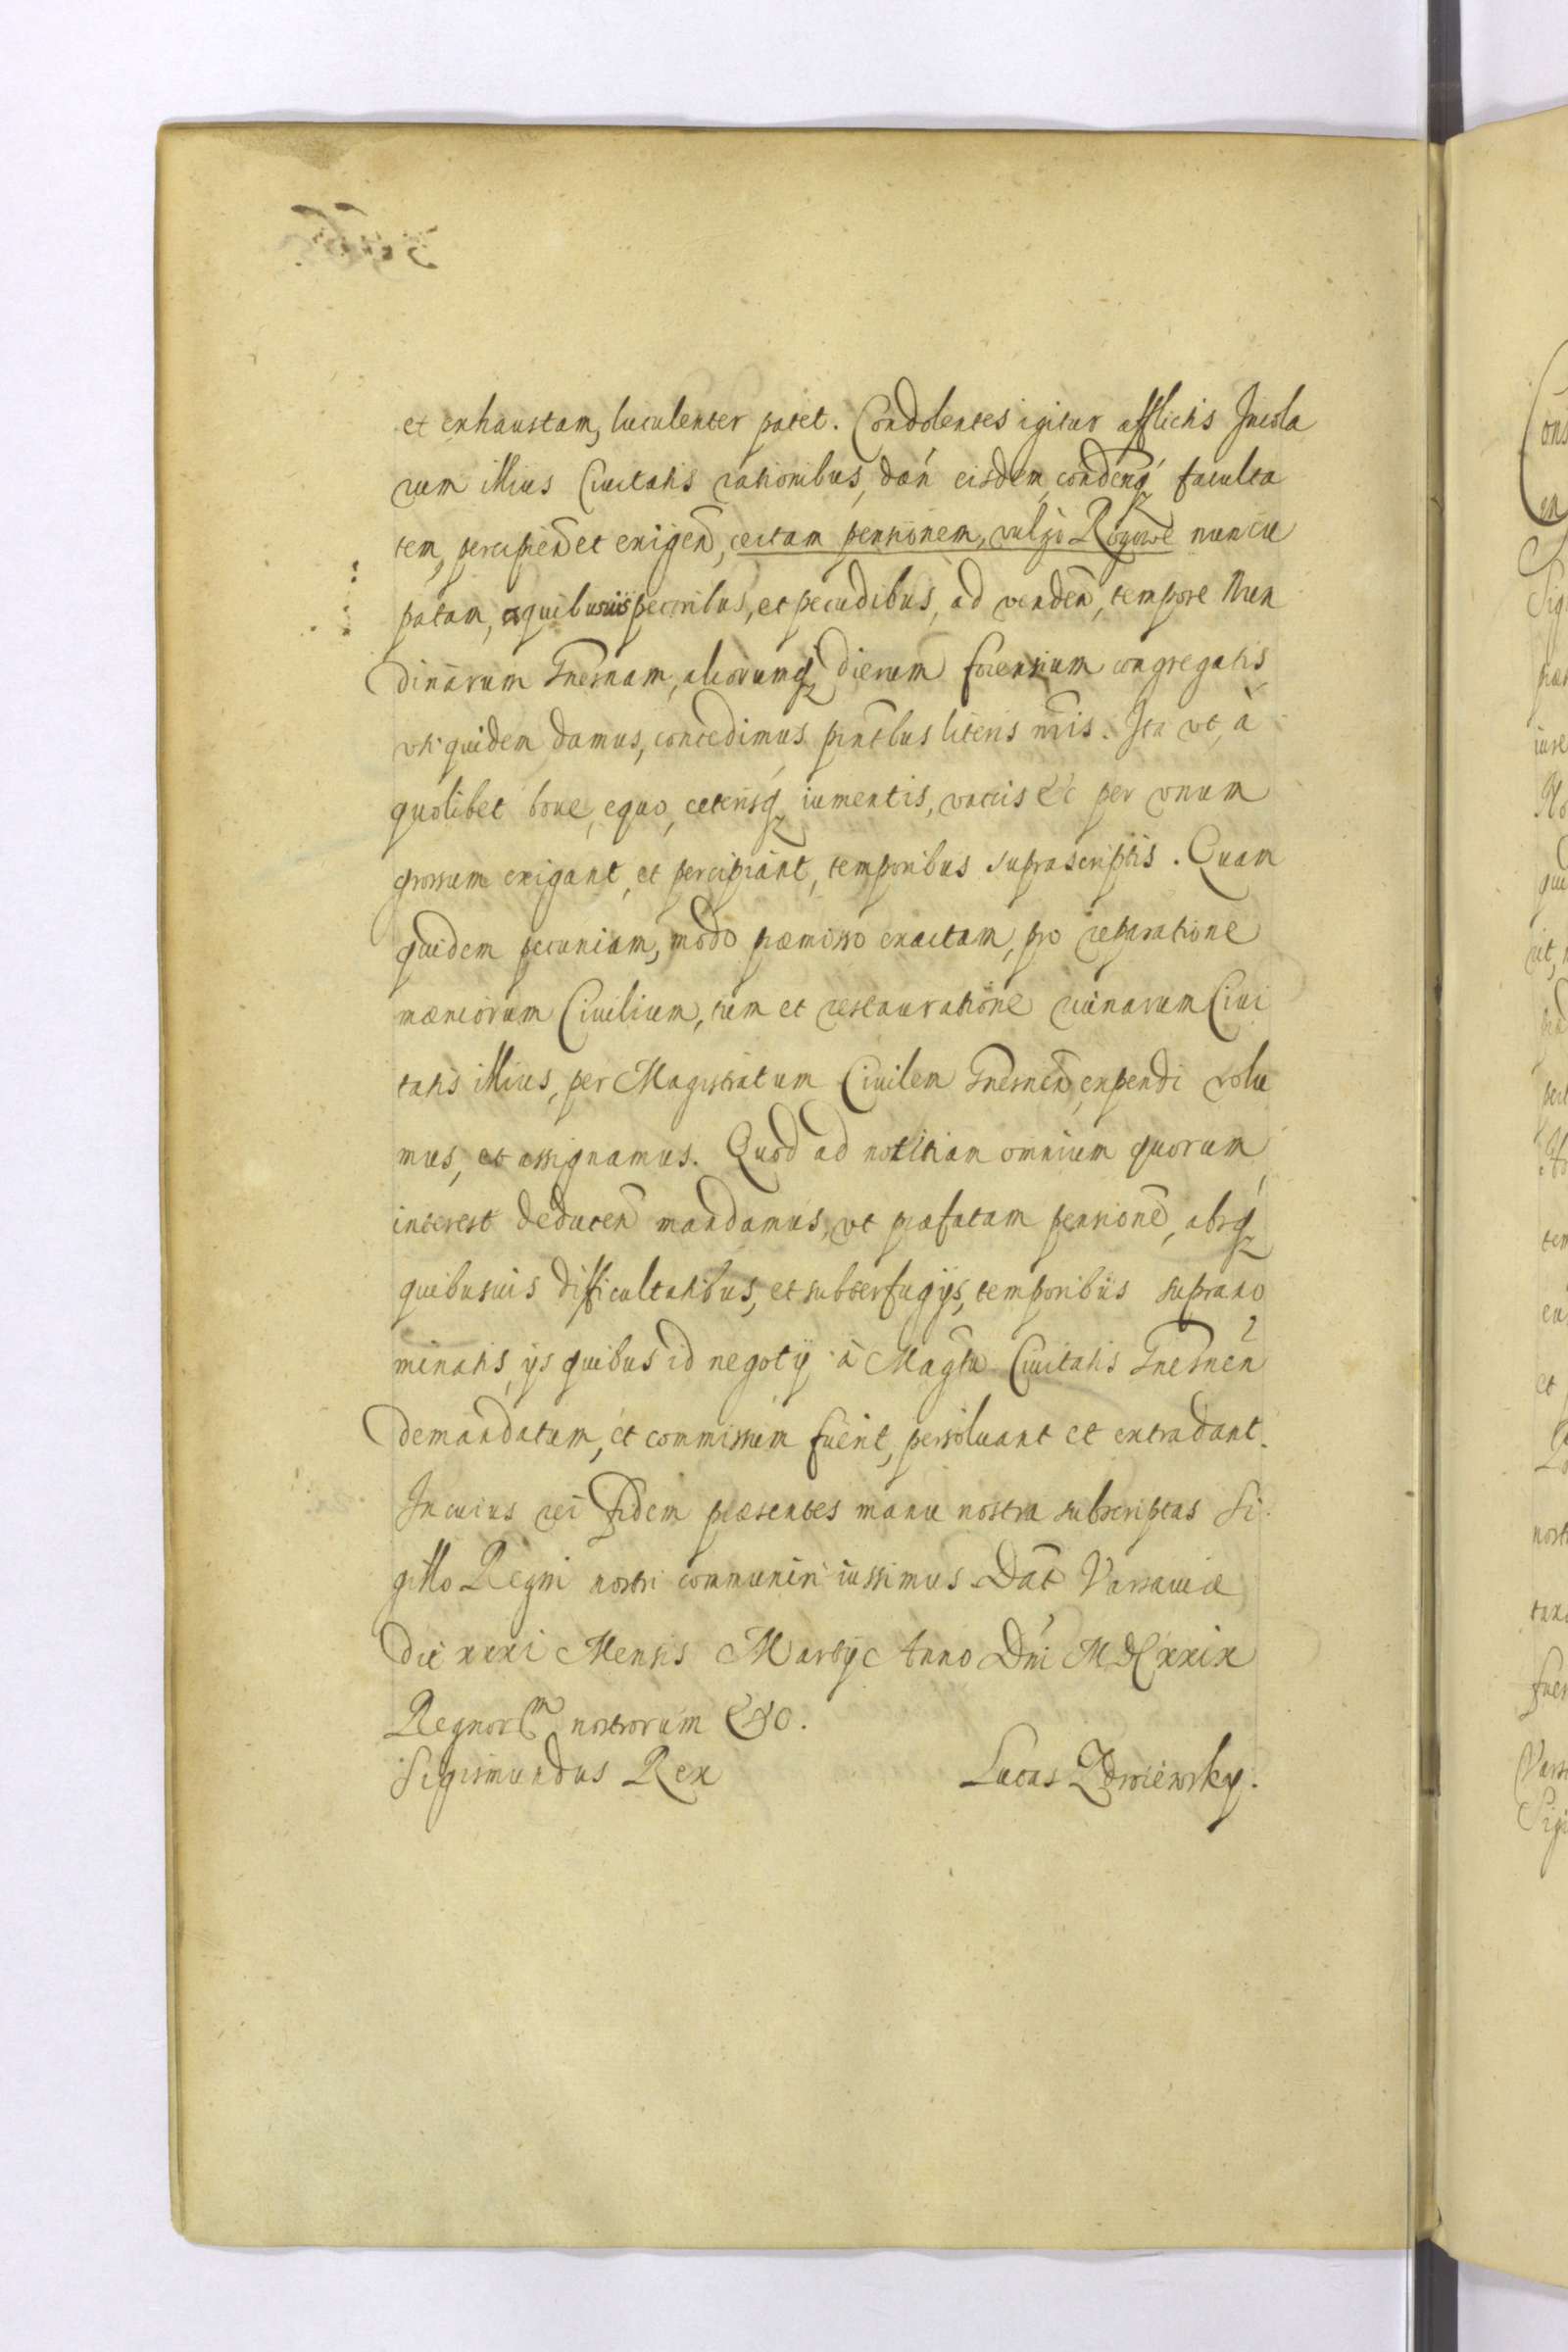 et exhaustam, luculenter patet. Condolentes igitur afflictis Incola
rum illius Ciuitatis rationibus, dań eisdem, condeńq́ faculta
tem, percipień et exigeń, certam pensionem, vulgo Rogowe nuncu
patam, a quibusuis pecoribus, et pecudibus, ad vendeń, tempore Nun
dinarum Gnesnam, aliorumq dierum forensium congregatis,
uti quidem damus, concedimus pñtibus literis nr̃is. Ita vt, à
quolibet boue, equo, ceterisq, iumentis, vaccis &c per vnum
grossum exigant, et percipiant, temporibus suprascriptis. Quam
quidem pecuniam, modo præmisso exactam, pro reparatione
mæniorum Ciuilium, tum et restauratione ruinarum Ciui
tatis illius, per Magistratum Ciuilem Gnesneń, expendi volu
mus, et assignamus. Quod ad notitiam omnium quorum
interest deduceń mandamus, vt præfatam pensionẽ, absq́
quibusuis difficultatibus, et subterfugijs, temporibus suprano
minatis, ijs quibus id negotij à Magr̃tu Ciuitatis Gnesneń
demandatum, et commissum fuerit, persoluant et extradant.
In cuius rei fidem præsentes manu nostra subscriptas Si
gillo Regni nostri communiri iussimus. Dat̃ Varsauiæ
die xxxi Mensis Martij Anno Dńi MDCxxix
Regnorum nostrorum &c.
Sigismundus Rex Lucas